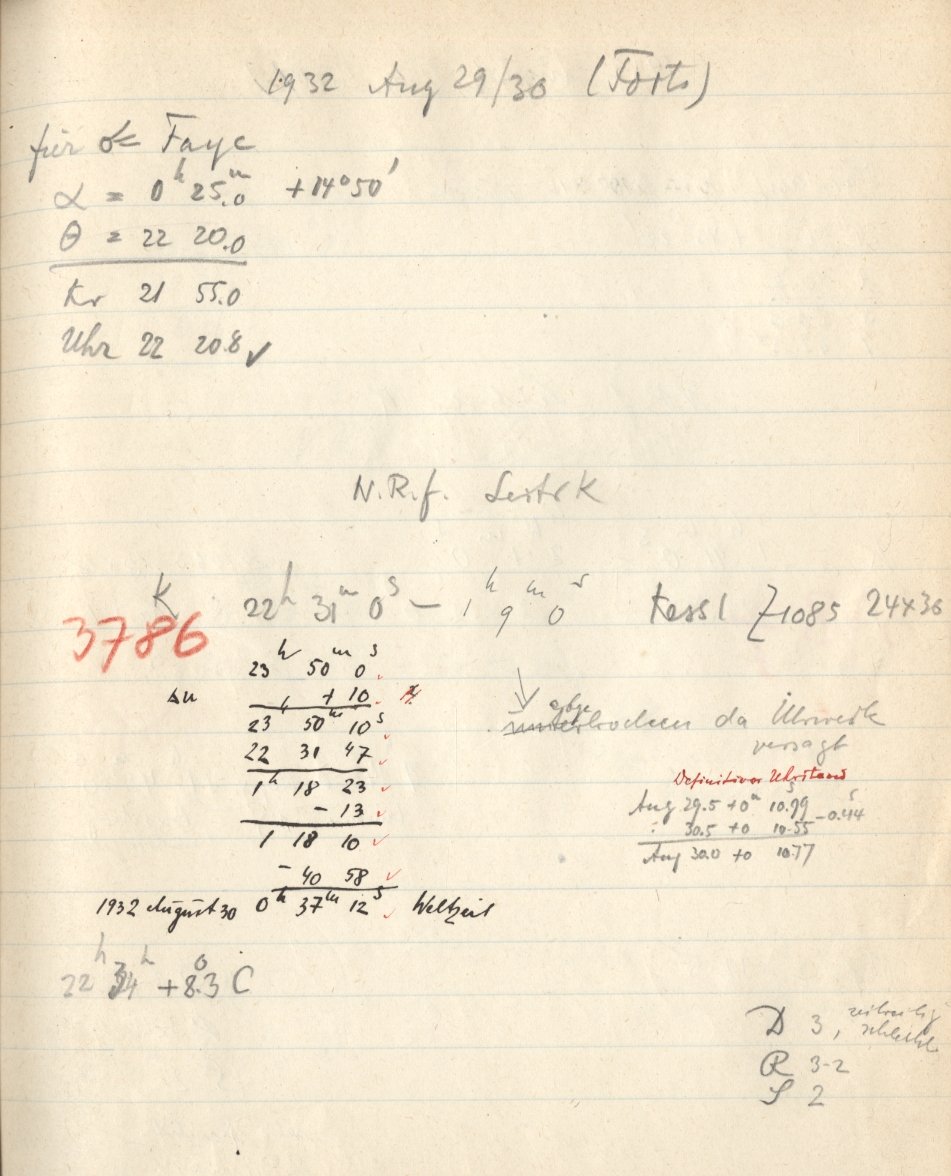 1932 Aug 29/30 (Forts)
für ☄ Faye
α = 0ʰ 25.ᵐ0 +14°50'
θ = 22 20.0
Kr 21 55.0
Uhr 22 20.8 ✓
N.R.f. Leitrk
K 22ʰ 31ᵐ 0ˢ – 1ʰ 9ᵐ 0ˢ Kessl Z1085 24x30
3786
23ʰ 50ᵐ 0ˢ
Δu + 10
23 50ᵐ 10ˢ
22 31 47
1ʰ 18 23
– 13
1 18 10
– 40 58
1932 August 30 0ʰ 37ᵐ 12ˢ Weltzeit
abge
unterbrochen da Uhrwerk
versagt
Definitiver Uhrstand
Aug 29.5 +0ᵐ 10.99ˢ –0.44ˢ
: 30.5 +0 10.55
Aug 30.0 +0 10.77
22ʰ 34ʰ +8.3° C
D 3, zeitweilig
schlecht
R 3-2
S 2